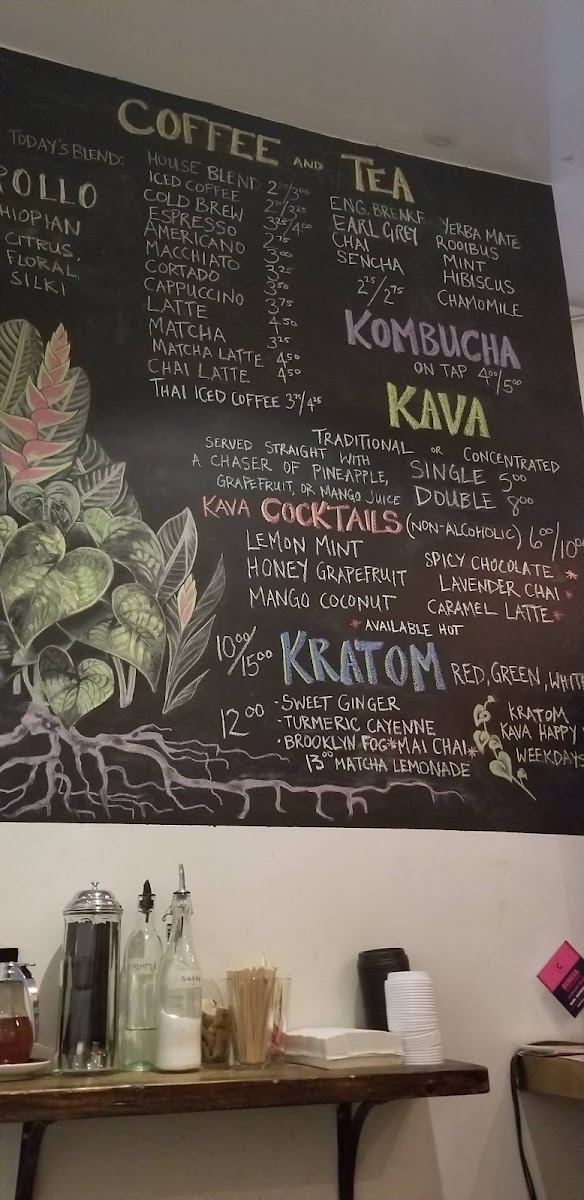 COFFEE AND TEA
TODAY'S BLEND:
POLLO
HIOPIAN
CITRUS,
FLORAL,
SILKI
HOUSE BLEND 3.00
ICED COFFEE 3.25
COLD BREW 3.25/4.00
ESPRESSO 2.75
AMERICANO 3.00
MACCHIATO 3.25
CORTADO 3.50
CAPPUCCINO 3.75
LATTE 4.50
MATCHA 3.25
MATCHA LATTE 4.50
CHAI LATTE 4.50
THAI ICED COFFEE 3.75/4.25
ENG. BREAKF
EARL GREY
CHAI
SENCHA
2.25/2.75
YERBA MATE
ROOIBUS
MINT
HIBISCUS
CHAMOMILE
KOMBUCHA
ON TAP 4.00/5.00
KAVA
TRADITIONAL OR CONCENTRATED
SERVED STRAIGHT WITH
A CHASER OF PINEAPPLE,
GRAPEFRUIT, OR MANGO JUICE
SINGLE 5.00
DOUBLE 8.00
KAVA COCKTAILS (NON-ALCOHOLIC) 6.00/10.00
LEMON MINT
HONEY GRAPEFRUIT
MANGO COCONUT
SPICY CHOCOLATE *
LAVENDER CHAI *
CARAMEL LATTE *
* AVAILABLE HOT
10.00/15.00 KRATOM RED, GREEN, WHITE
12.00 - SWEET GINGER
- TURMERIC CAYENNE
· BROOKLYN FOG * MAI CHAI *
13.00 MATCHA LEMONADE
KRATOM
KAVA HAPPY
WEEKDAYS